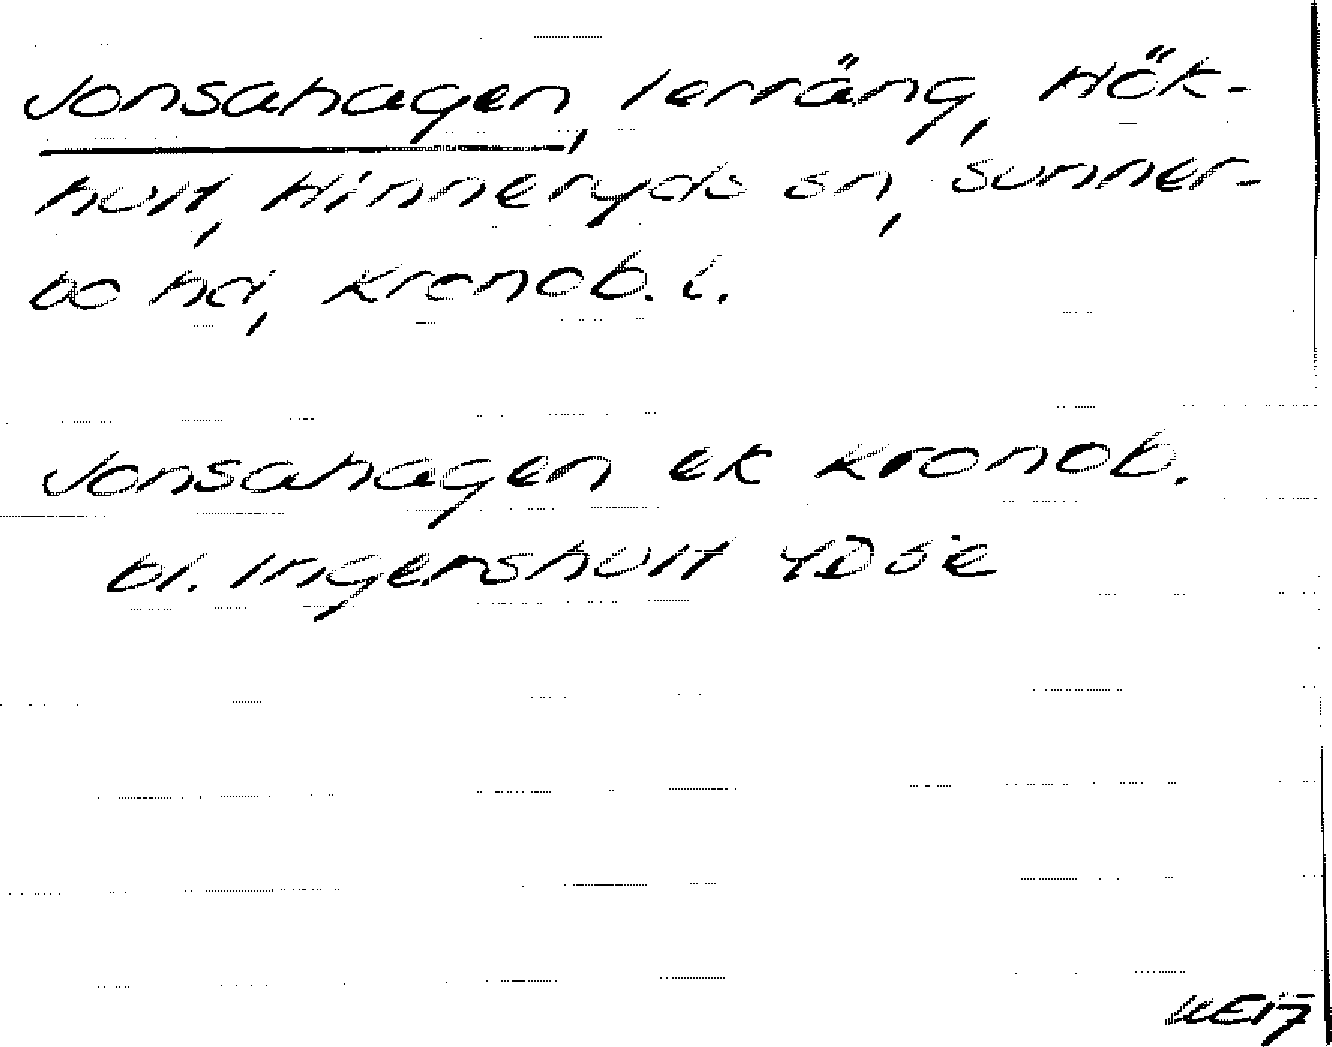 Jonsahagen, terräng, Hök-
hult, Hinneryds sn, Sunner-
bo hd, Kronob. l.
Jonsahagen ek Kronob.
bl. Ingershult 4D5e